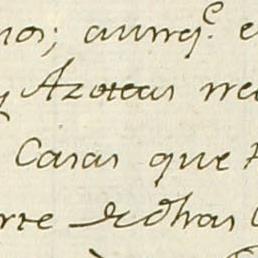 nos; aunq.e e
y Azoteas rre
Casas que
rte de otras